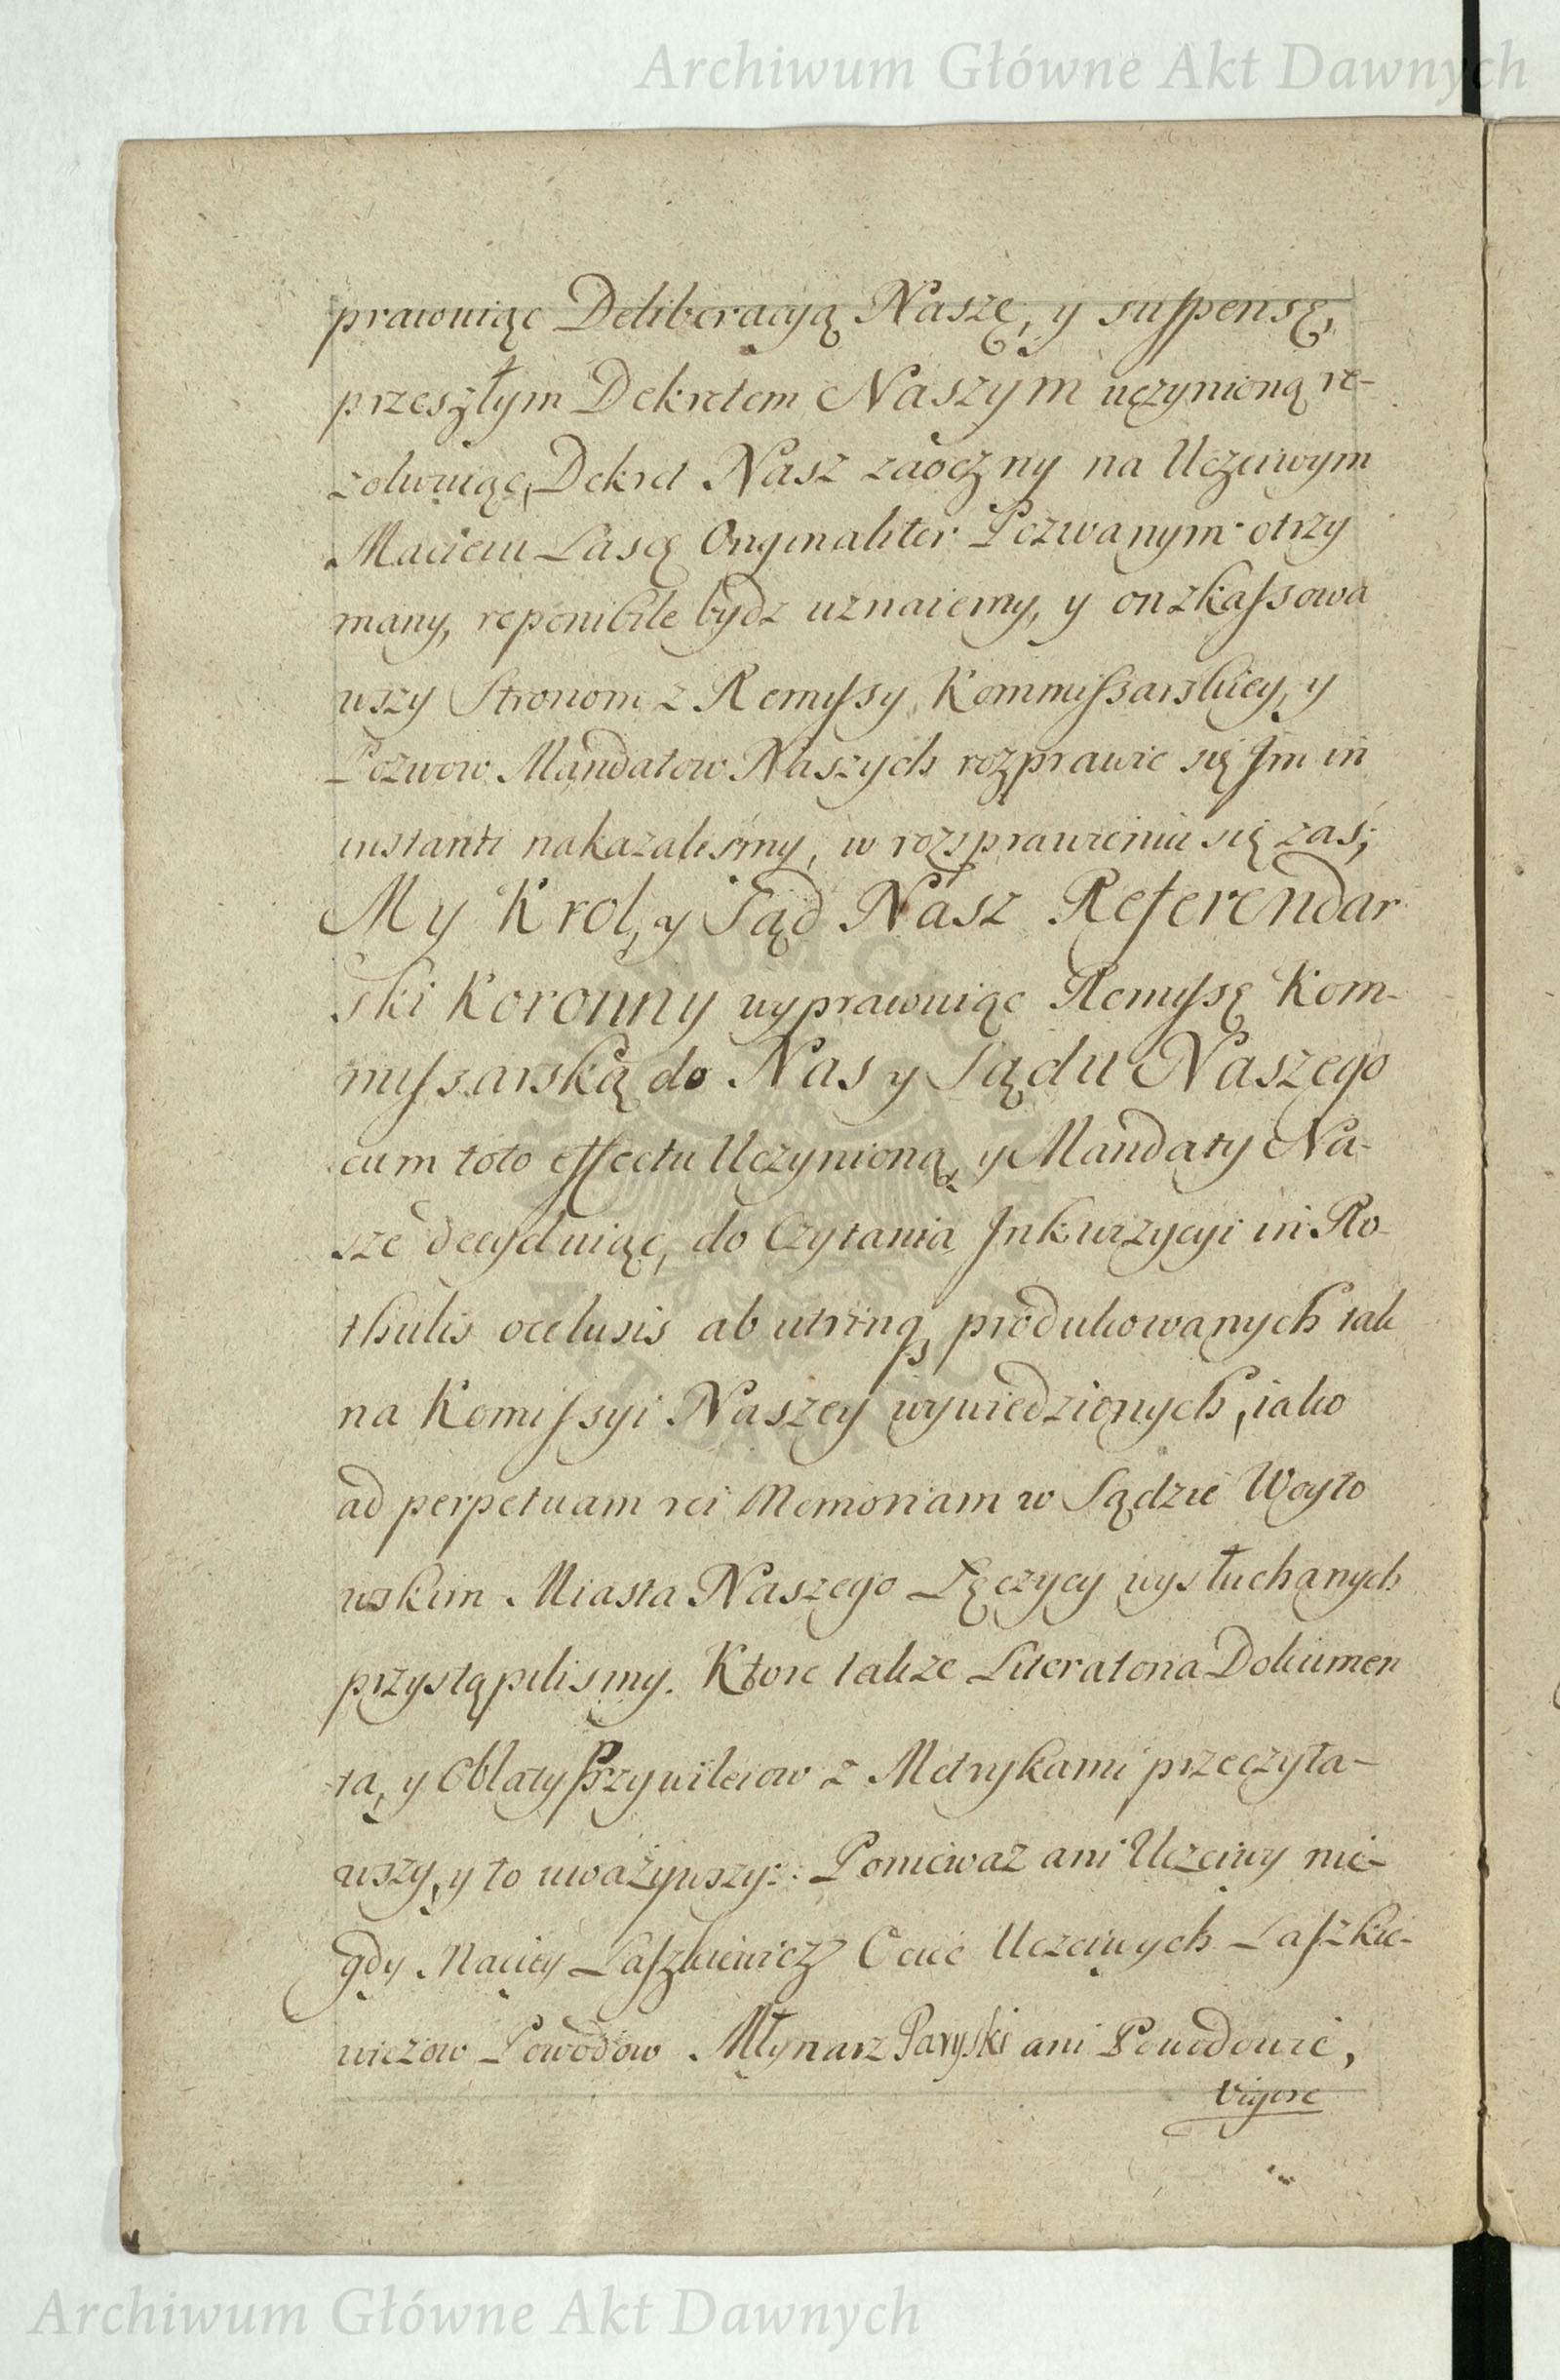 Archiwum Główne Akt Dawnych
prawuiąc Deliberacyą Naszę, y suspensę,
przeszłym Dekretem Naszym uczynioną re-
zolwuiąc, Dekret Nasz zaoczny na Uczciwym
Macieiu Lasce Originaliter Pozwanym otrzy
many, reponibile bydz uznaiemy, y on zkassowa
wszy Stronom z Remyssy Kommissarskiey, y
Pozwow Mandatow Naszych rozprawic się Jm in
instanti nakazalismy, w rozsprawieniu się zaś;
My Krol, y Sąd Nasz Referendar
ski Koronny wyprawuiąc Remyssę Kom-
myssarską do Nas y Sądu Naszego
cum toto effectu Uczynioną, y Mandaty Na-
sze decyduiąc, do Czytania Jnkwizycyi in Ro-
thulis occlusis ab utrinq produkowanych tak
na Komissyi Naszey wywiedzionych, iako
ad perpetuam rei Memoriam w Sądzie Woyto
wskim Miasta Naszego Łęczycy wysłuchanych
przystąpilismy. Ktore także Literatoria Dokumen
ta, y Oblaty Przywileiow z Metrykami przeczyta-
wszy, y to uważywszy: Ponieważ ani Uczciwy nie-
gdy Maciey Laszkiewicz Ociec Uczciwych Laszkie-
wiczow Powodow Młynarz Paryski ani Powodowie,
Vigore
Archiwum Główne Akt Dawnych